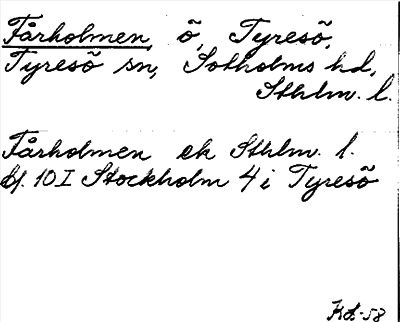 Fårholmen, ö, Tyresö,
Tyresö sn, Sotholms hd,
Sthlm. l.
Fårholmen ek Sthlm. l.
bl. 10 I Stockholm 4 i Tyresö
Kd-58